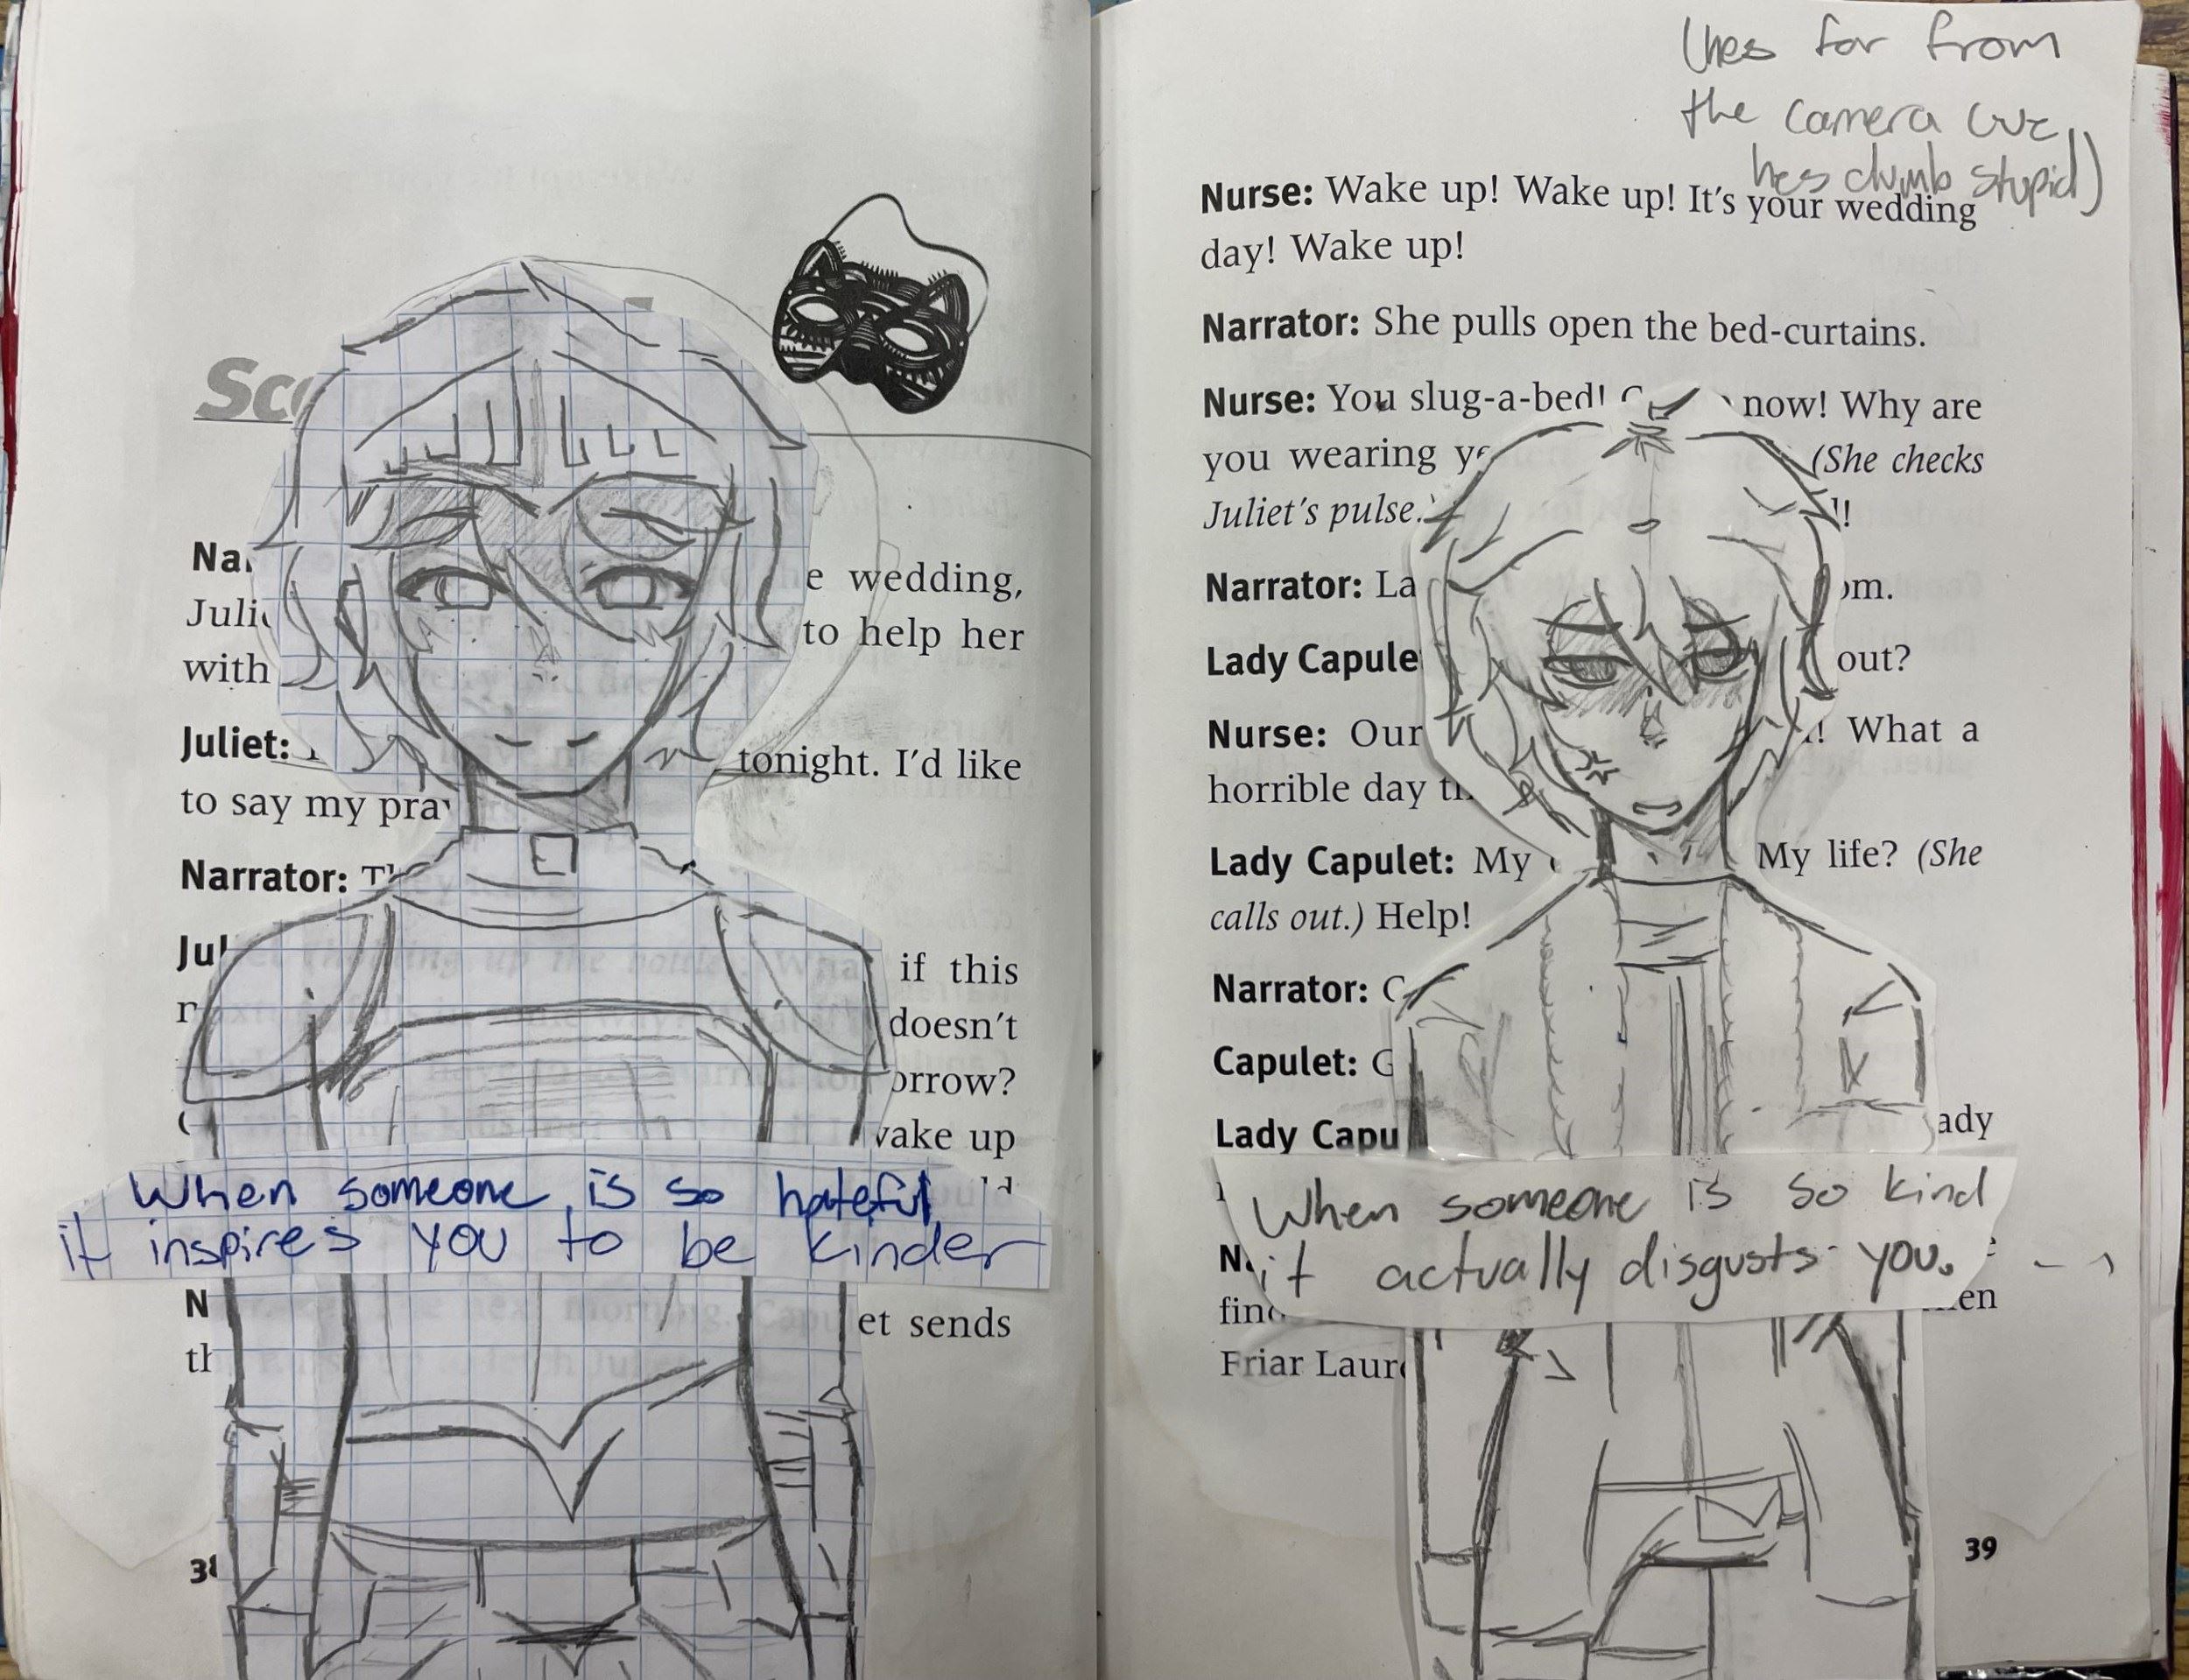 Sc
Na
e wedding,
Juli
to help her
with
Juliet:
tonight. I'd like
to say my pra
Narrator:
Jul
if this
doesn't
orrow?
wake up
When someone is so hateful
it inspires you to be kinder
N
et sends
th
38
(hes far from
the camera cuz
hes dumb stupid)
Nurse: Wake up! Wake up! It's your wedding
day! Wake up!
Narrator: She pulls open the bed-curtains.
Nurse: You slug-a-bed! now! Why are
you wearing (She checks
Juliet's pulse.
Narrator: La om.
Lady Capule out?
Nurse: Our What a
horrible day
Lady Capulet: My My life? (She
calls out.) Help!
Narrator:
Capulet: G
Lady Capu ady
When someone is so kind
it actually disgusts you.
find en
Friar Laur
39